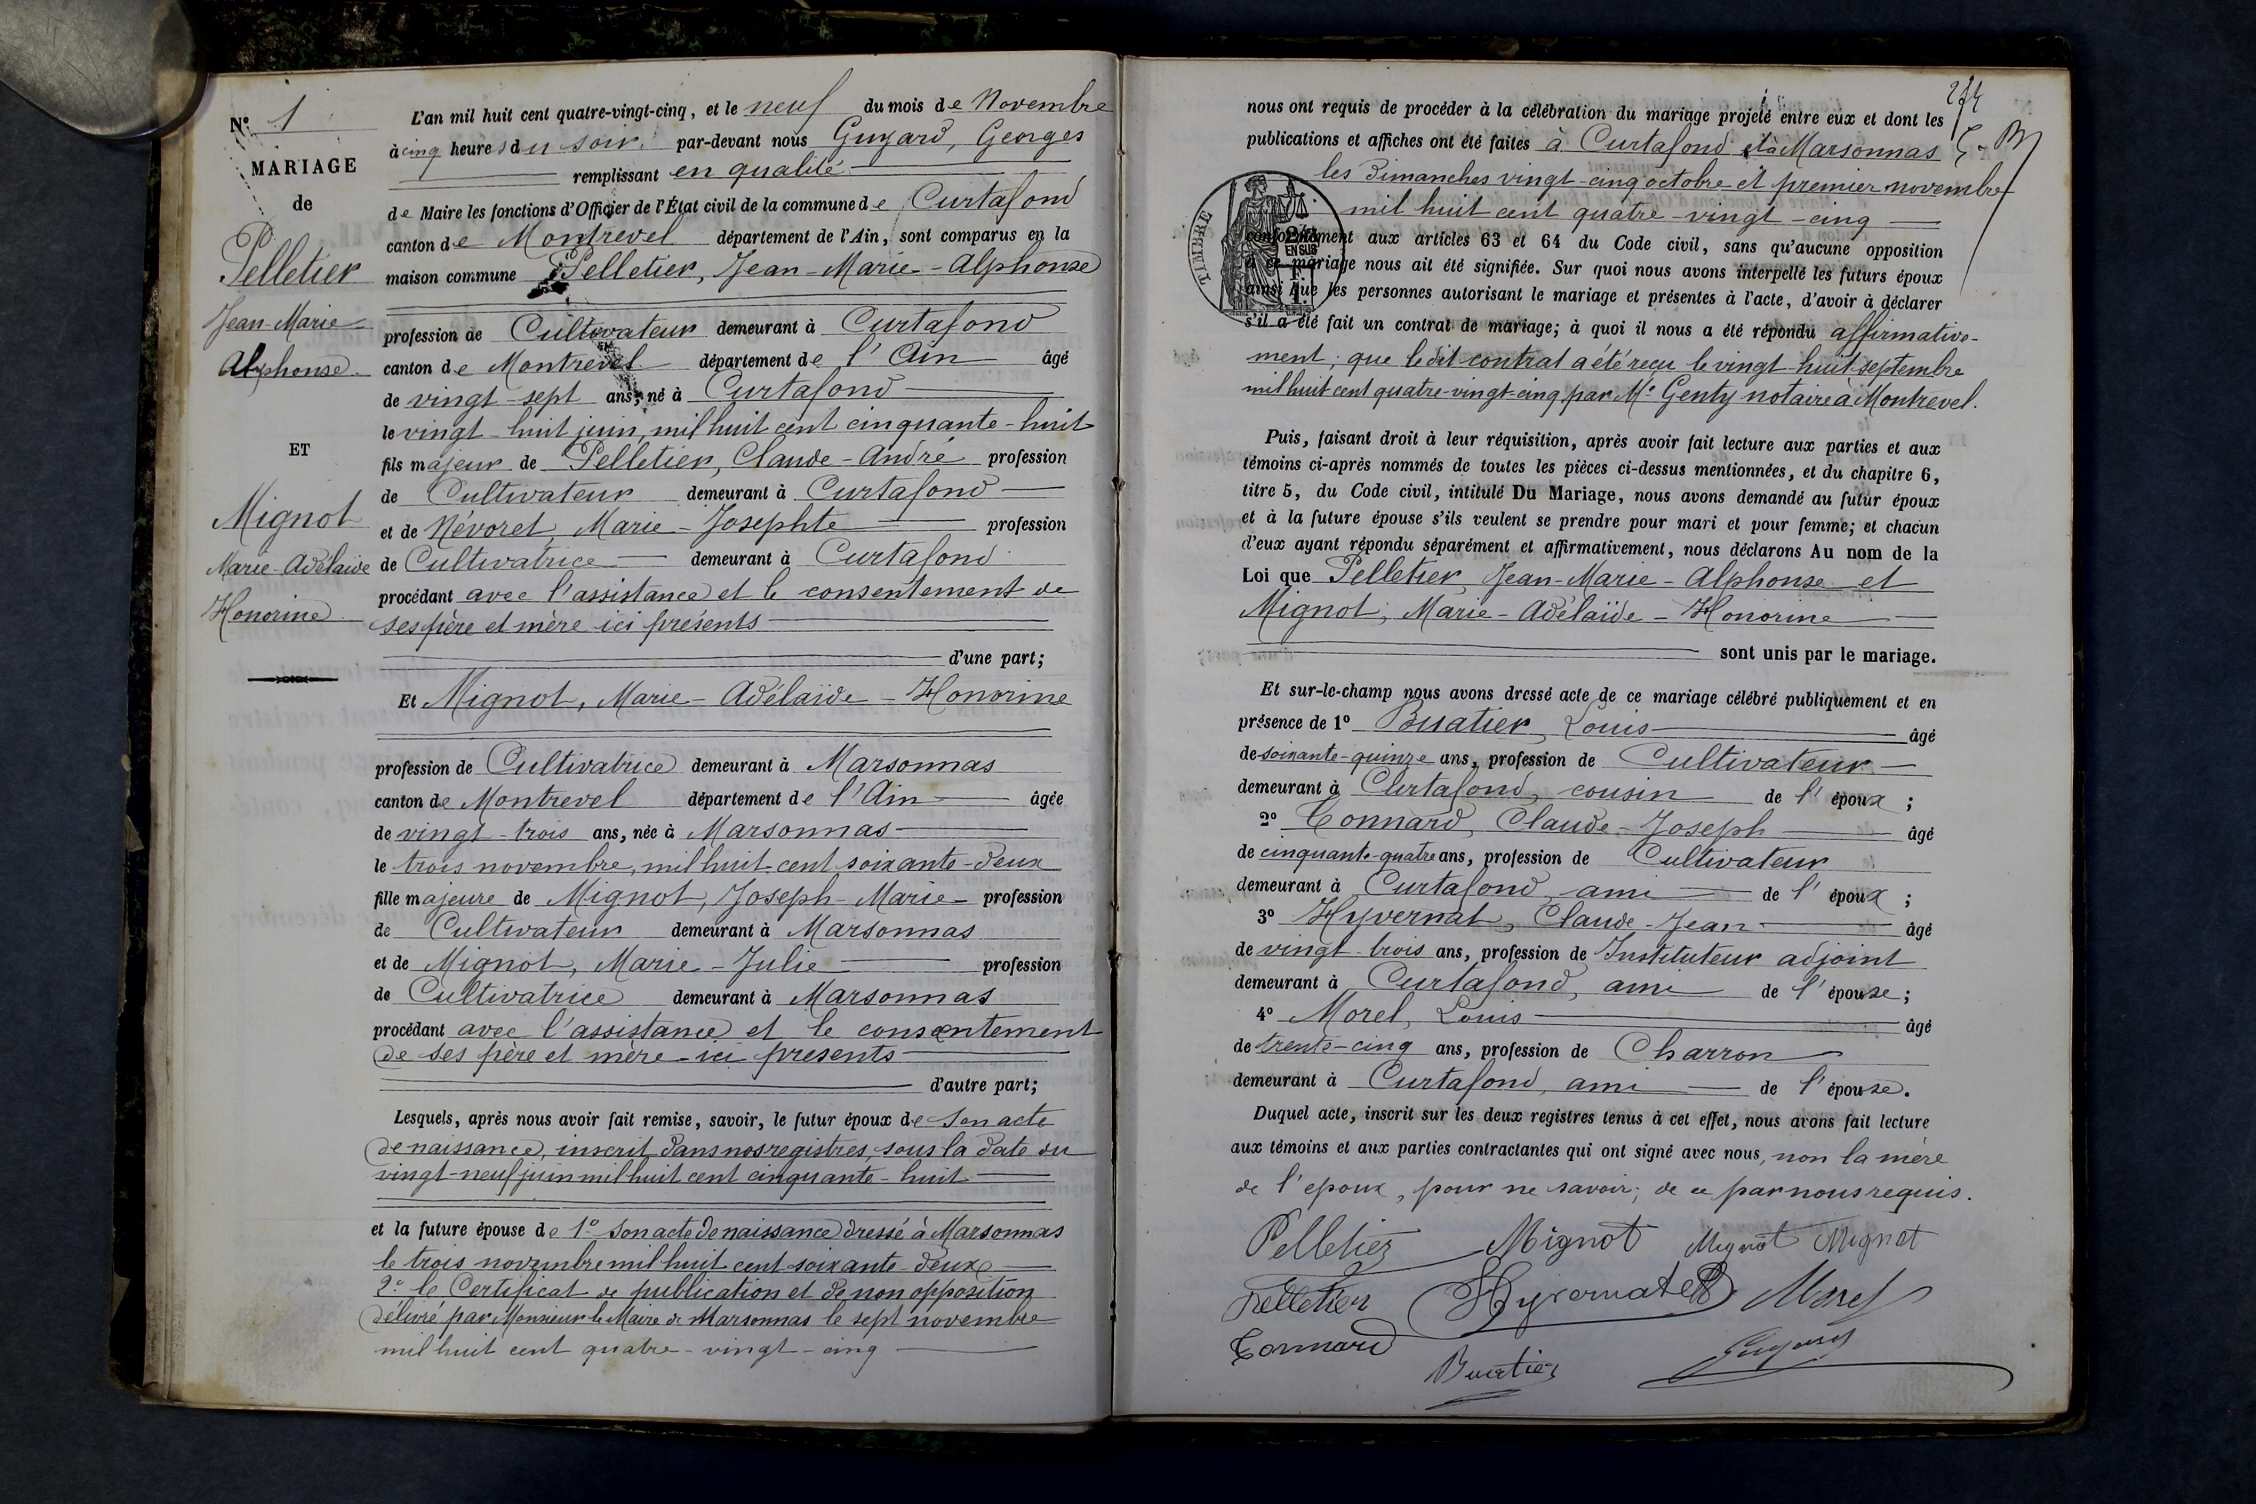 N° 1
MARIAGE
de
Pelletier
Jean-Marie-
Alphonse
ET
Mignot
Marie-Adélaïde
Honorine
L'an mil huit cent quatre-vingt-cinq, et le neuf du mois de Novembre
à cinq heures du soir, par-devant nous Guyard, Georges
remplissant en qualité
de Maire les fonctions d'Officier de l'État civil de la commune de Curtafond
canton de Montrevel département de l'Ain, sont comparus en la
maison commune Pelletier, Jean-Marie-Alphonse
profession de Cultivateur demeurant à Curtafond
canton de Montrevel département de l'Ain âgé
de vingt-sept ans, né à Curtafond
le vingt-huit juin, mil huit cent cinquante-huit
fils majeur de Pelletier, Claude-André profession
de Cultivateur demeurant à Curtafond
et de Névoret, Marie-Josephte profession
de Cultivatrice demeurant à Curtafond
procédant avec l'assistance et le consentement de
ses père et mère ici présents
d'une part;
Et Mignot, Marie-Adélaïde-Honorine
profession de Cultivatrice demeurant à Marsonnas
canton de Montrevel département de l'Ain âgée
de vingt-trois ans, née à Marsonnas
le trois novembre, mil huit-cent soixante-deux
fille majeure de Mignot, Joseph-Marie profession
de Cultivateur demeurant à Marsonnas
et de Mignot, Marie-Julie profession
de Cultivatrice demeurant à Marsonnas
procédant avec l'assistance et le consentement
de ses père et mère-ici présents
d'autre part;
Lesquels, après nous avoir fait remise, savoir, le futur époux de son acte
de naissance, inscrit dans nos registres, sous la date du
vingt-neuf juin mil huit cent cinquante-huit
et la future épouse de 1° son acte de naissance dressé à Marsonnas
le trois novembre mil huit cent soixante-deux
2° le Certificat de publication et de non opposition
délivré par Monsieur le Maire de Marsonnas le sept novembre
mil huit cent quatre-vingt-cinq
274
nous ont requis de procéder à la célébration du mariage projeté entre eux et dont les
publications et affiches ont été faites à Curtafond et à Marsonnas
les Dimanches vingt-cinq octobre et premier novembre
mil huit cent quatre-vingt-cinq
TIMBRE
EN SUS
conformément aux articles 63 et 64 du Code civil, sans qu'aucune opposition
à ce mariage nous ait été signifiée. Sur quoi nous avons interpellé les futurs époux
ainsi que les personnes autorisant le mariage et présentes à l'acte, d'avoir à déclarer
s'il a été fait un contrat de mariage; à quoi il nous a été répondu affirmative-
ment; que le dit contrat a été reçu le vingt-huit septembre
mil huit cent quatre-vingt-cinq par Me Genty notaire à Montrevel.
Puis, faisant droit à leur réquisition, après avoir fait lecture aux parties et aux
témoins ci-après nommés de toutes les pièces ci-dessus mentionnées, et du chapitre 6,
titre 5, du Code civil, intitulé Du Mariage, nous avons demandé au futur époux
et à la future épouse s'ils veulent se prendre pour mari et pour femme; et chacun
d'eux ayant répondu séparément et affirmativement, nous déclarons Au nom de la
Loi que Pelletier Jean-Marie-Alphonse et
Mignot, Marie-Adélaïde-Honorine
sont unis par le mariage.
Et sur-le-champ nous avons dressé acte de ce mariage célébré publiquement et en
présence de 1° Buatier, Louis âgé
de soixante-quinze ans, profession de Cultivateur
demeurant à Curtafond, cousin de l'époux;
2° Connard, Claude-Joseph âgé
de cinquante-quatre ans, profession de Cultivateur
demeurant à Curtafond ami de l'époux;
3° Hyvernat, Claude-Jean âgé
de vingt-trois ans, profession de Instituteur adjoint
demeurant à Curtafond, ami de l'épouse;
4° Morel, Louis âgé
de trente-cinq ans, profession de Charron
demeurant à Curtafond, ami de l'épouse.
Duquel acte, inscrit sur les deux registres tenus à cet effet, nous avons fait lecture
aux témoins et aux parties contractantes qui ont signé avec nous, non la mère
de l'époux, pour ne savoir, de ce par nous requis.
Pelletier Mignot Mignot Mignot
Pelletier Hyvernat Morel
Connard
Buatier Guyard